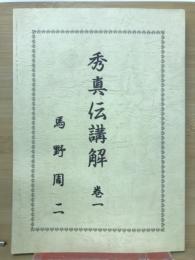 秀真伝講解 巻一
馬野周二